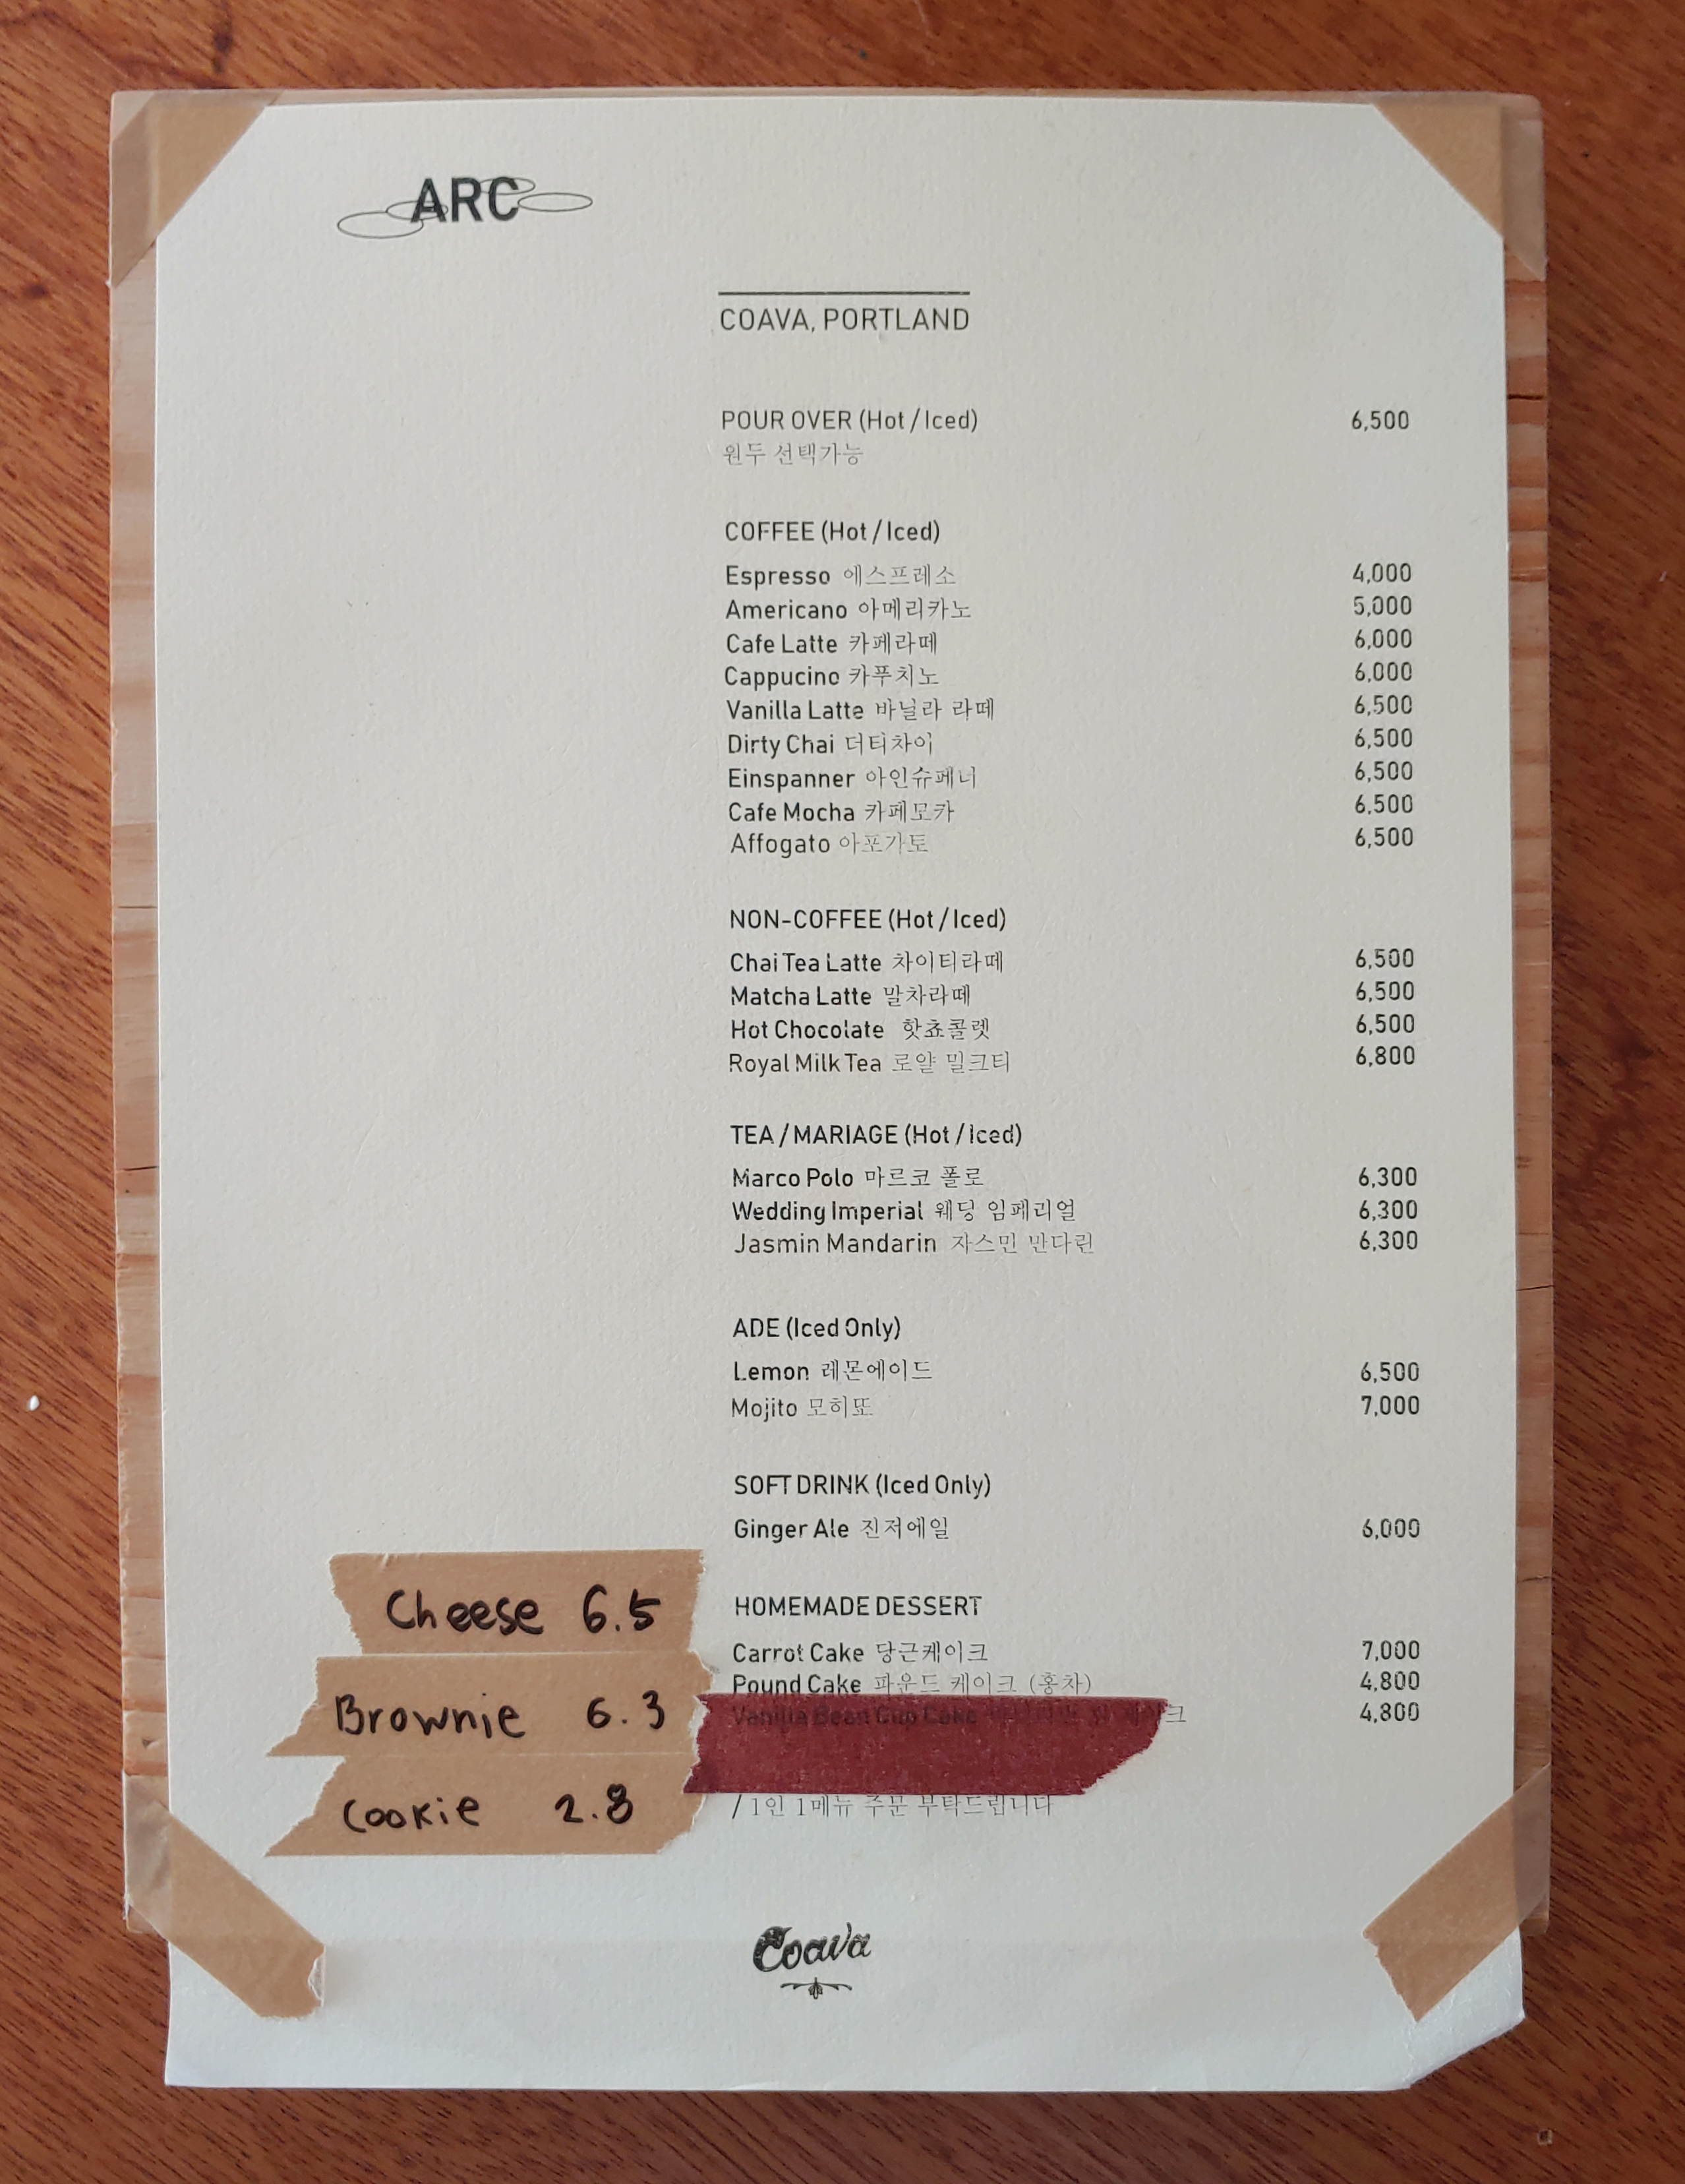 ARC
COAVA, PORTLAND
POUR OVER (Hot / Iced) 6,500
원두 선택가능
COFFEE (Hot / Iced)
Espresso 에스프레소 4,000
Americano 아메리카노 5,000
Cafe Latte 카페라떼 6,000
Cappucino 카푸치노 6,000
Vanilla Latte 바닐라 라떼 6,500
Dirty Chai 더티차이 6,500
Einspanner 아인슈페너 6,500
Cafe Mocha 카페모카 6,500
Affogato 아포가토 6,500
NON-COFFEE (Hot / Iced)
Chai Tea Latte 차이티라떼 6,500
Matcha Latte 말차라떼 6,500
Hot Chocolate 핫쵸콜렛 6,500
Royal Milk Tea 로얄 밀크티 6,800
TEA / MARIAGE (Hot / Iced)
Marco Polo 마르코 폴로 6,300
Wedding Imperial 웨딩 임페리얼 6,300
Jasmin Mandarin 자스민 만다린 6,300
ADE (Iced Only)
Lemon 레몬에이드 6,500
Mojito 모히또 7,000
SOFT DRINK (Iced Only)
Ginger Ale 진저에일 6,000
HOMEMADE DESSERT
Carrot Cake 당근케이크 7,000
Pound Cake 파운드 케이크 (홍차) 4,800
Vanilla Bean Cup Cake 케이크 4,800
/ 1인 1메뉴 주문 부탁드립니다
Cheese 6.5
Brownie 6.3
Cookie 2.8
Coava